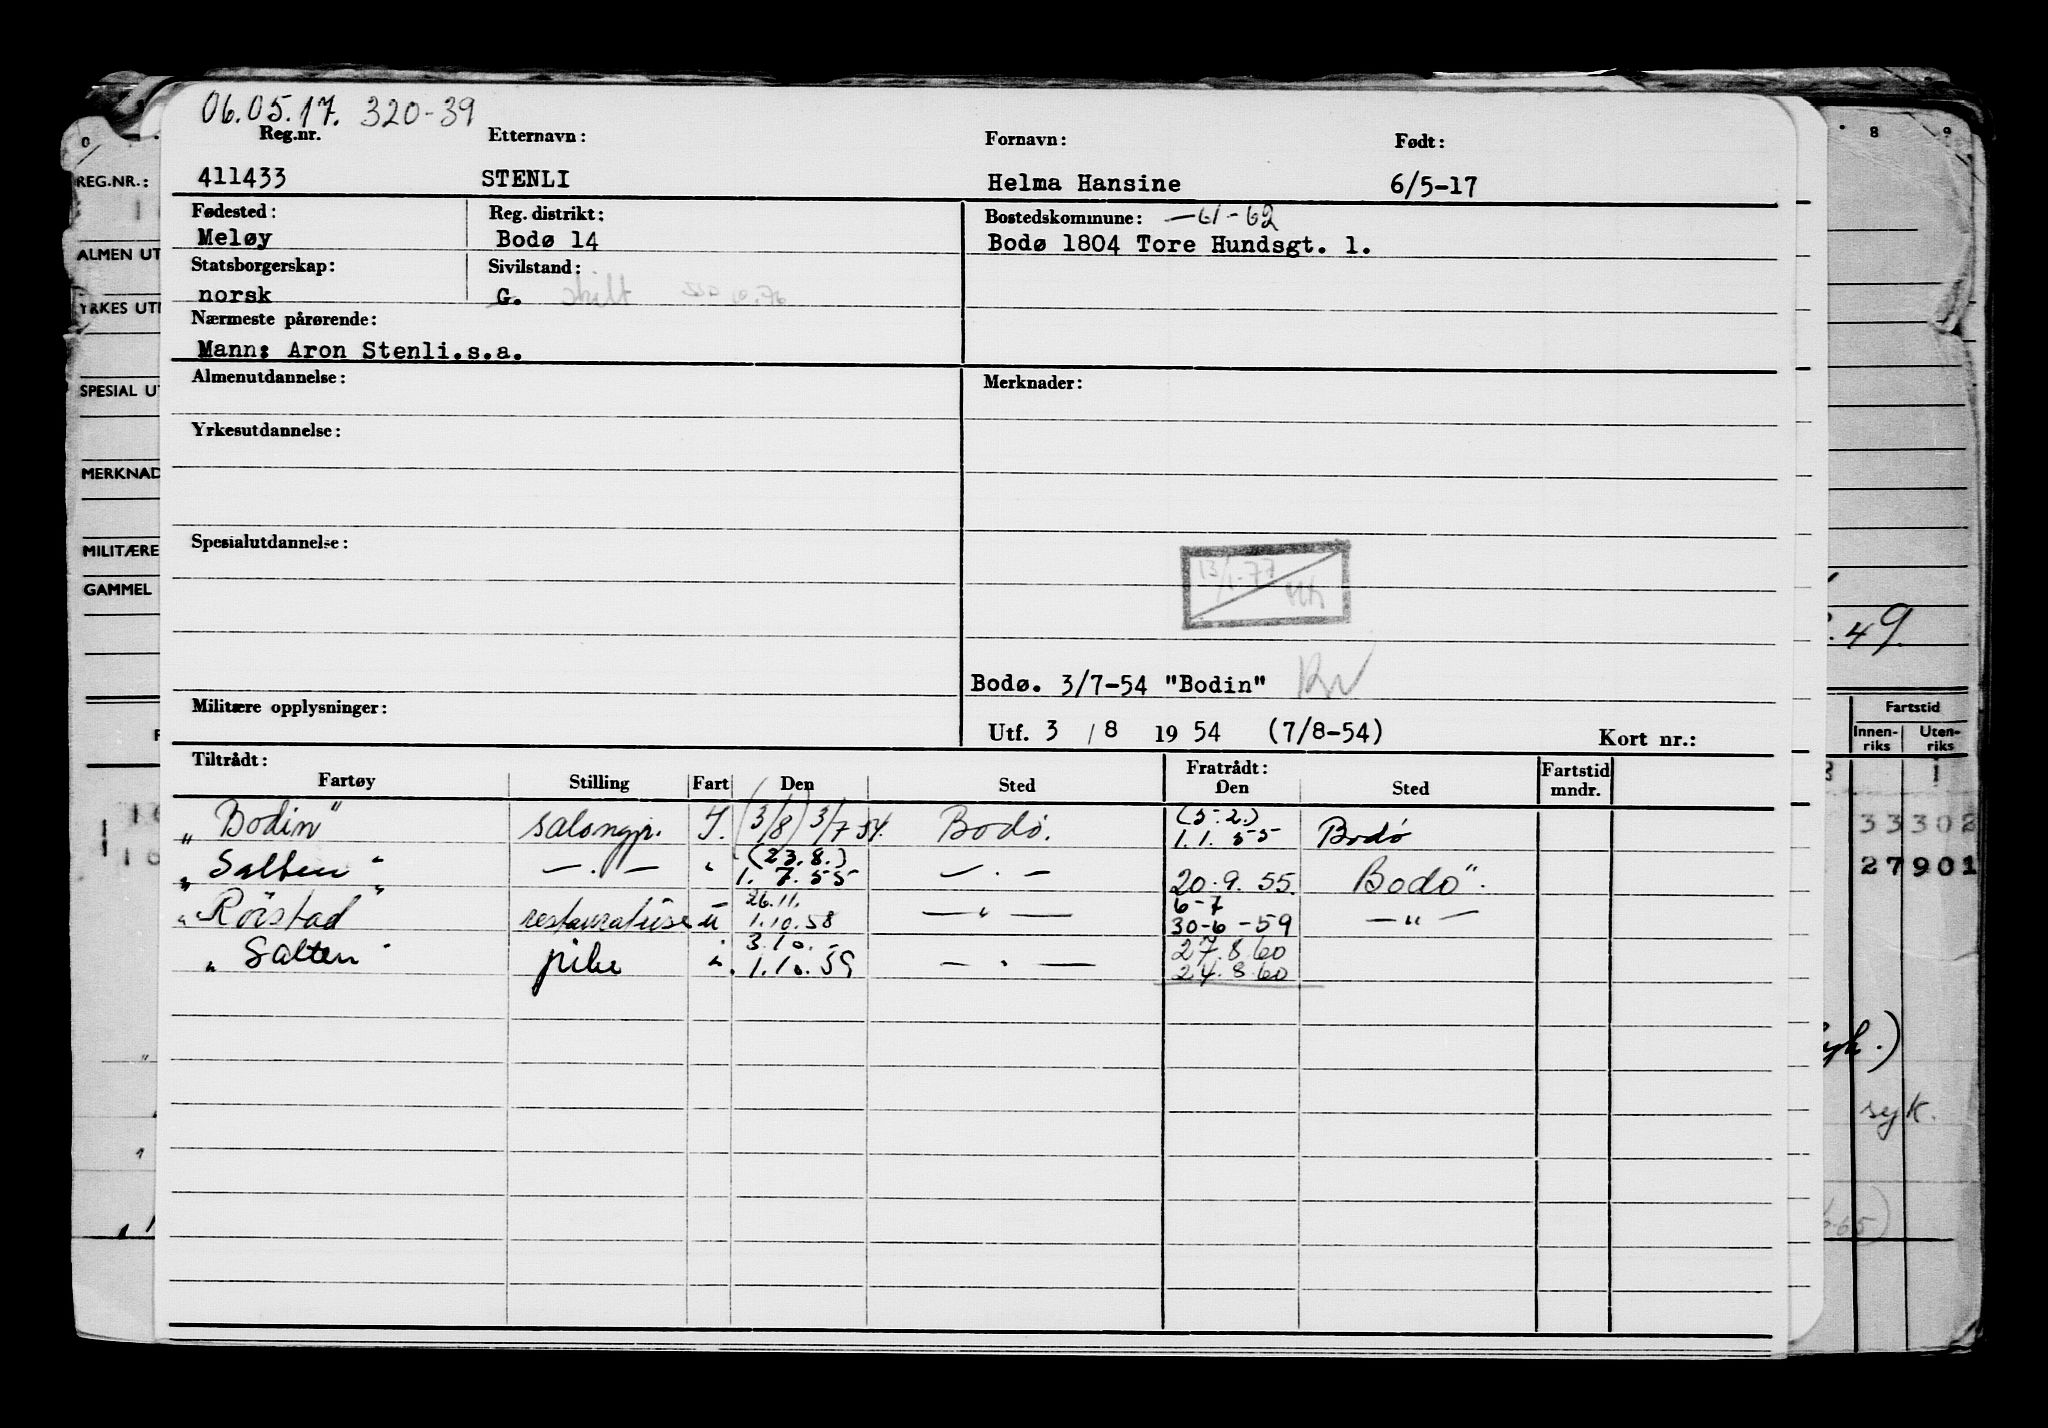 06.05.17. 320-39
Reg.nr. Etternavn: Fornavn: Født:
411433 STENLI Helma Hansine 6/5-17
Fødested: Reg. distrikt: Bostedskommune: —61-62
Meløy Bodø 14 Bodø 1804 Tore Hundsgt. 1.
Statsborgerskap: Sivilstand:
norsk G. skilt
Nærmeste pårørende:
Mann: Aron Stenli.s.a.
Almenutdannelse: Merknader:
Yrkesutdannelse:
Spesialutdannelse:
13/1-77
Bodø. 3/7-54 "Bodin"
Militære opplysninger:
Utf. 3 / 8 19 54 (7/8-54) Kort nr.:
Tiltrådt: Fratrådt: Fartstid
Fartøy Stilling Fart Den Sted Den Sted mndr.
"Bodin" salongp. I. (3/8) 3/7 54. Bodø. (5.2.) 1.1.55 Bodø
"Salten" — . — " (23.8.) 1.7.55 — . — 20.9.55. Bodø.
"Röistad" restauratrise u 26.11. 1.10.58 — " — 6-7 30-6-59 — " —
"Salten" pike " 3.10. 1.10.59 — " — 27.8.60 24.8.60
REG.NR.:
ALMEN UT
YRKES UT
SPESIAL UT
MERKNAD
MILITÆRE
GAMMEL
0
8 9
.49.
Fartstid
Innen-riks Uten-riks
33302
27901
syk.